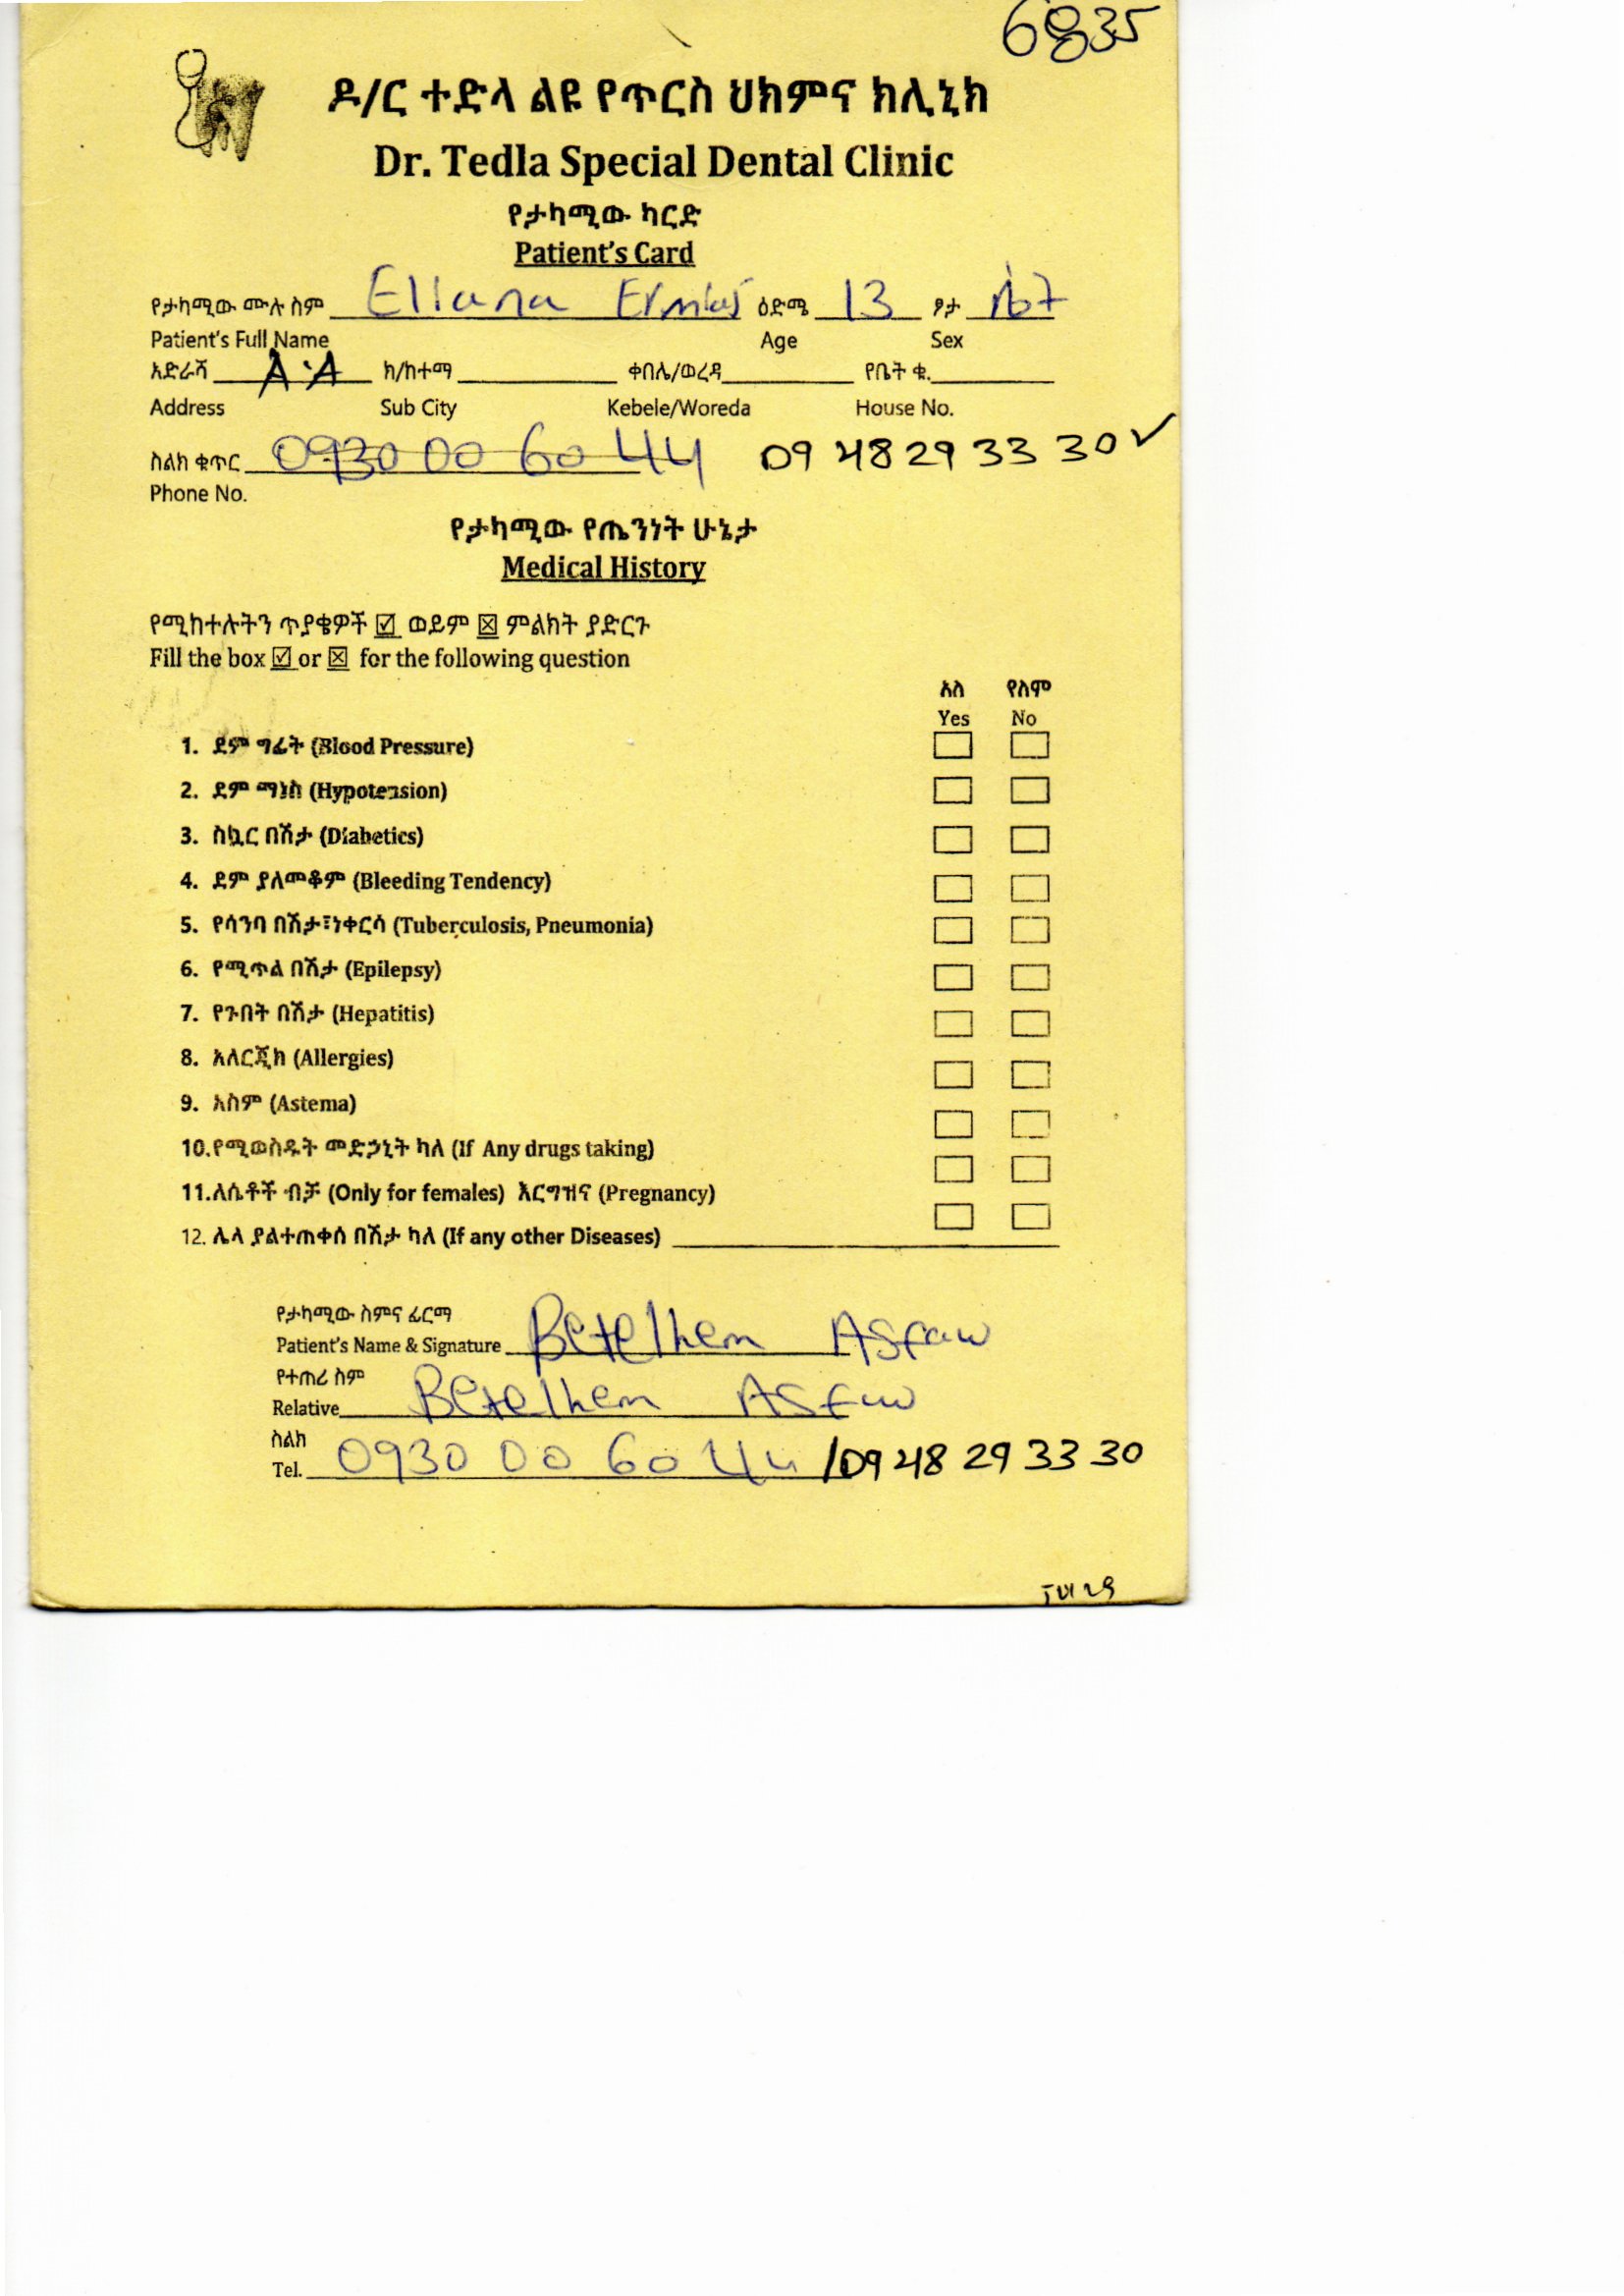 6835
ዶ/ር ተድላ ልዩ የጥርስ ህክምና ክሊኒክ
Dr. Tedla Special Dental Clinic
የታካሚው ካርድ
Patient's Card
የታካሚው ሙሉ ስም Eliana Ermias ዕድሜ 13 ፆታ
Patient's Full Name Age Sex
አድራሻ A.A ክ/ከተማ ቀበሌ/ወረዳ የቤት ቁ.
Address Sub City Kebele/Woreda House No.
ስልክ ቁጥር 0930 00 60 44 09 48 29 33 30 ✓
Phone No.
የታካሚው የጤንነት ሁኔታ
Medical History
የሚከተሉትን ጥያቄዎች ☑ ወይም ☒ ምልክት ያድርጉ
Fill the box ☑ or ☒ for the following question
አለ የለም
Yes No
1. ደም ግፊት (Blood Pressure)
2. ደም ማነስ (Hypotension)
3. ስኳር በሽታ (Diabetics)
4. ደም ያለመቆም (Bleeding Tendency)
5. የሳንባ በሽታ፣ነቀርሳ (Tuberculosis, Pneumonia)
6. የሚጥል በሽታ (Epilepsy)
7. የጉበት በሽታ (Hepatitis)
8. አለርጂክ (Allergies)
9. አስም (Astema)
10.የሚወስዱት መድኃኒት ካለ (If Any drugs taking)
11.ለሴቶች ብቻ (Only for females) እርግዝና (Pregnancy)
12. ሌላ ያልተጠቀሰ በሽታ ካለ (If any other Diseases)
የታካሚው ስምና ፊርማ
Patient's Name & Signature Betelhem Asfaw
የተጠሪ ስም
Relative Betelhem Asfaw
ስልክ
Tel. 0930 00 60 44 /09 48 29 33 30